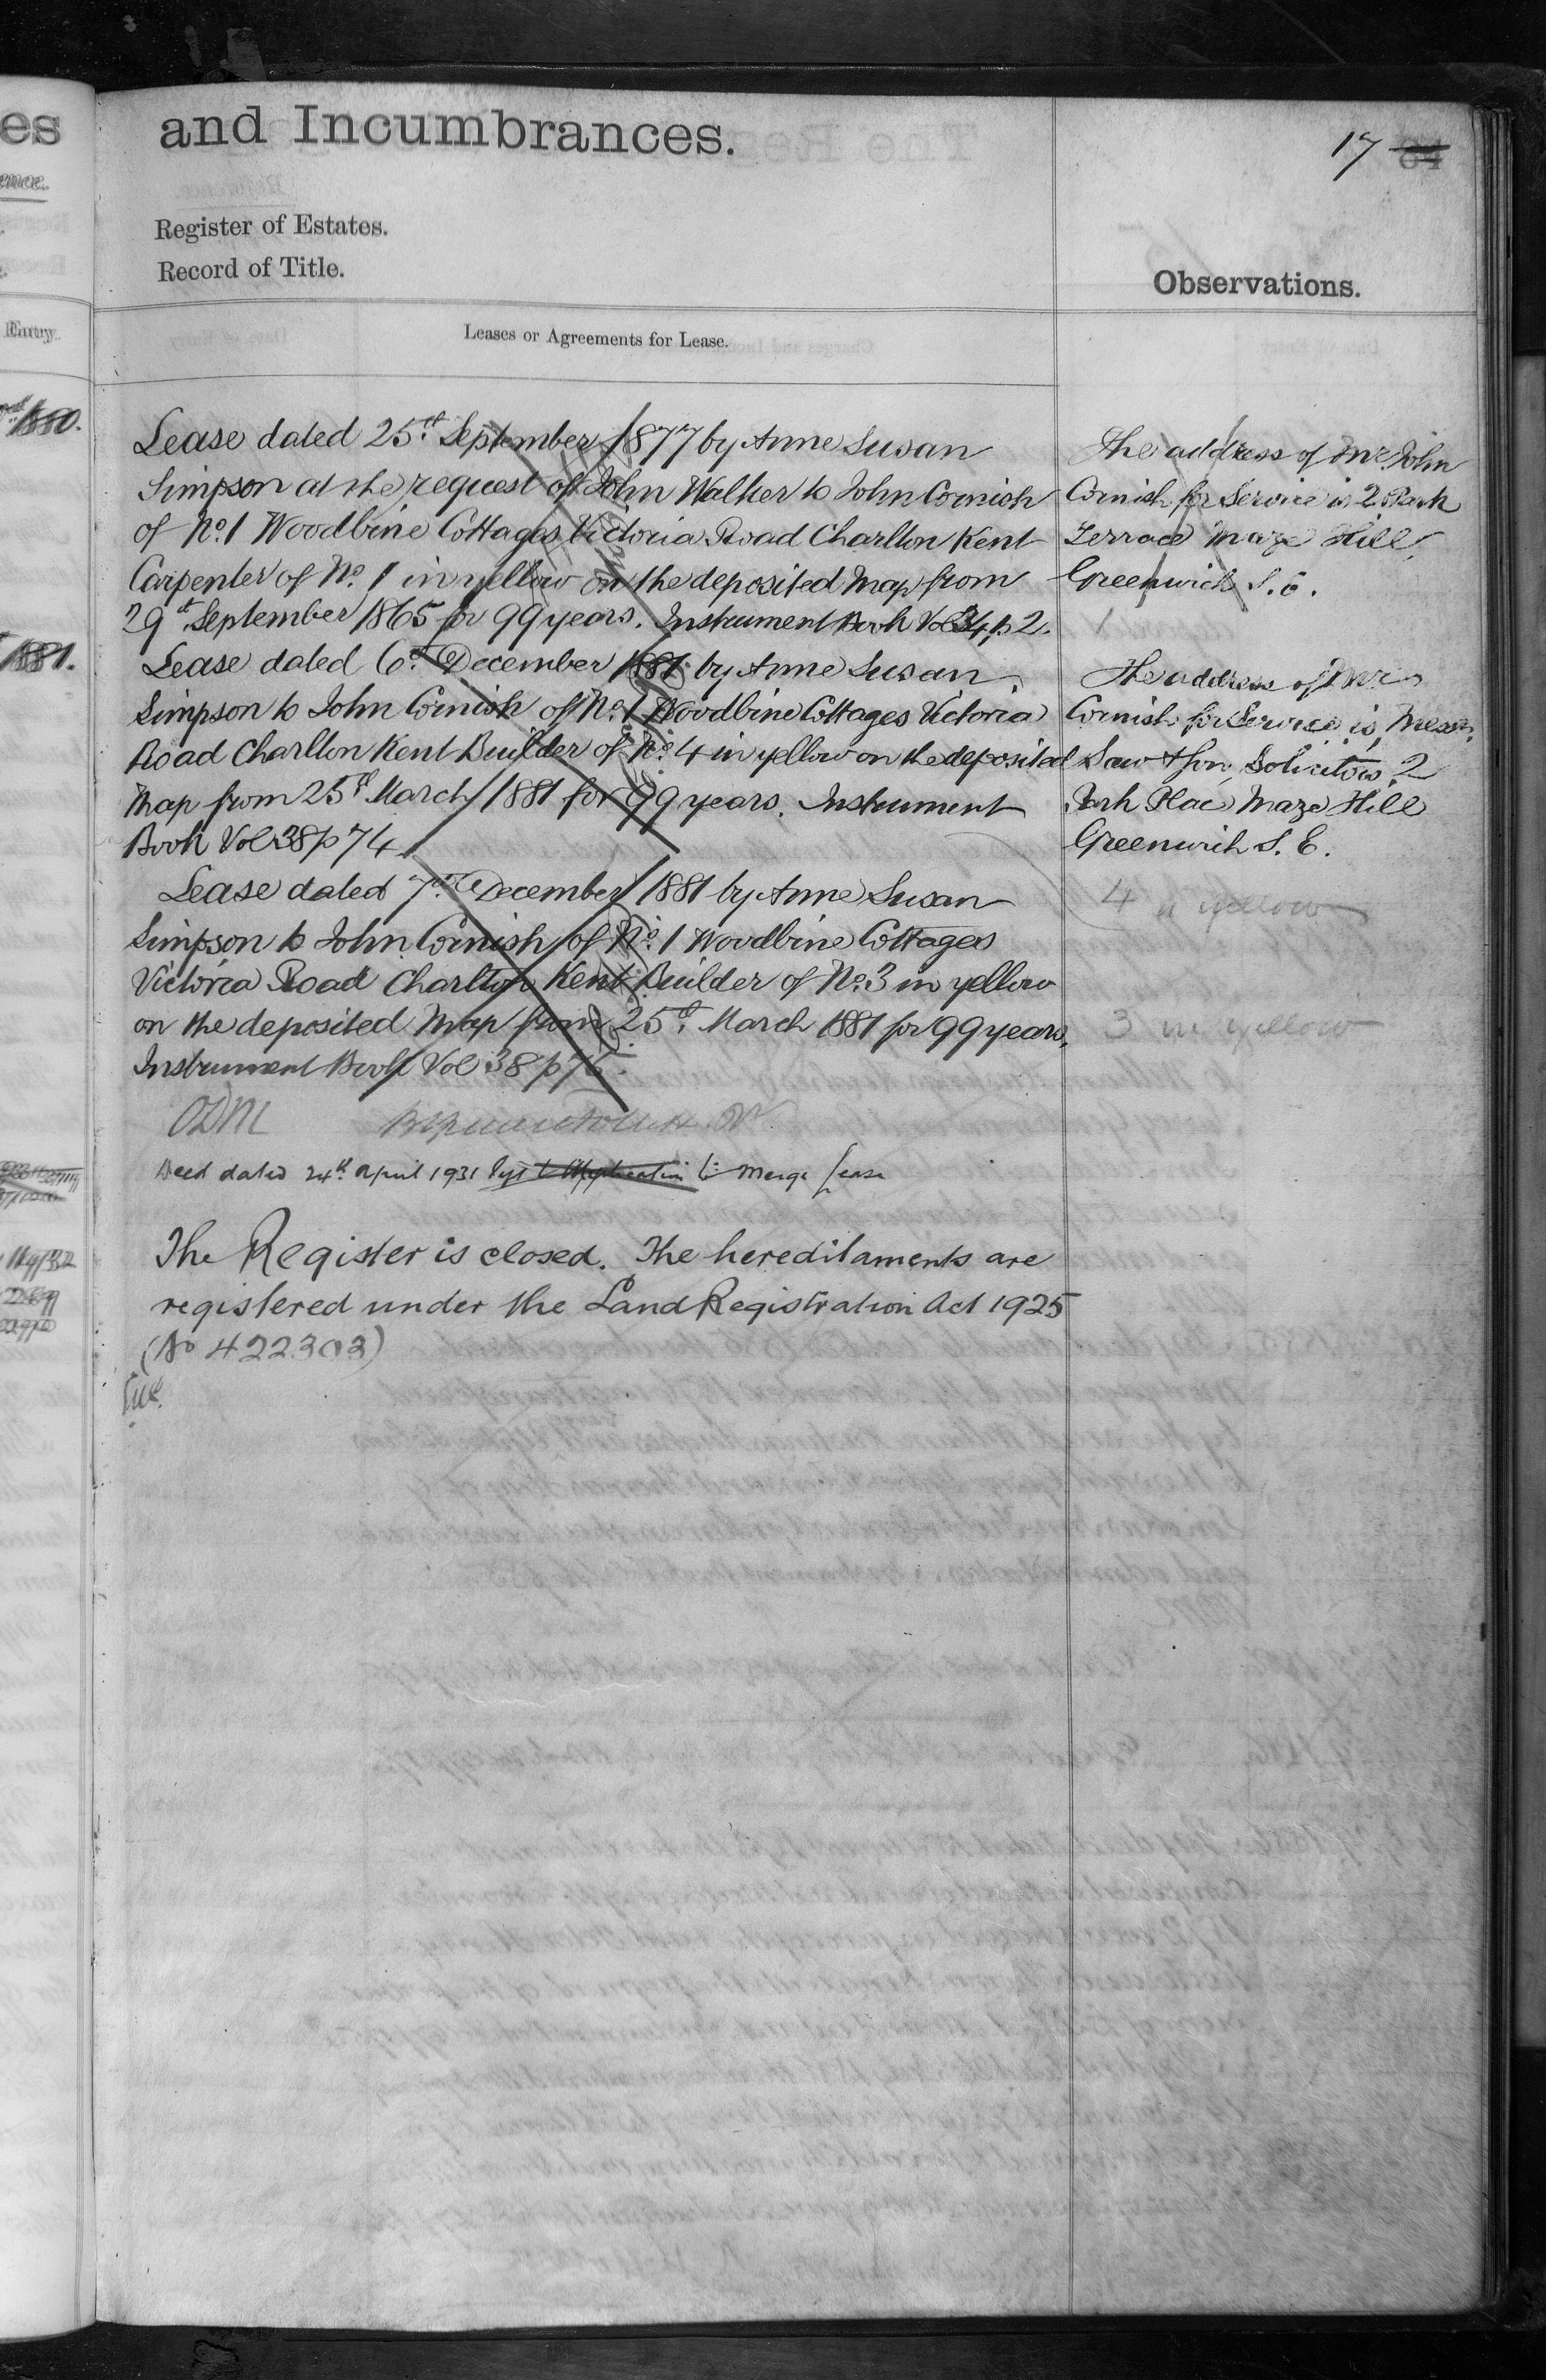 and Incumbrances.
17 64
Register of Estates.
Record of Title.
Observations.
Leases or Agreements for Lease.
Entry.
1880.
1881.
Lease dated 25th September 1877 by Anne Susan
Simpson at the request of John Walker to John Cornish
of No. 1 Woodbine Cottages Victoria Road Charlton Kent
Carpenter of No. 1 in yellow on the deposited Map from
29th September 1865 for 99 years. Instrument Book Vol 34 p 2.
Lease dated 6th December 1881 by Anne Susan
Simpson to John Cornish of No. 1 Woodbine Cottages Victoria
Road Charlton Kent Builder of No. 4 in yellow on the deposited
Map from 25th March 1881 for 99 years. Instrument
Book Vol 38 p 74.
Lease dated 7th December 1881 by Anne Susan
Simpson to John Cornish of No. 1 Woodbine Cottages
Victoria Road Charlton Kent Builder of No. 3 in yellow
on the deposited Map from 25th March 1881 for 99 years.
Instrument Book Vol 38 p
ODM
Deed dated 24th April 1931 to Merge Lease
The Register is closed. The hereditaments are
registered under the Land Registration Act 1925
(No 422303)
The address of Mr. John
Cornish for Service is 2 Park
Terrace Maze Hill
Greenwich S.E.
1
The address of Mr.
Cornish for Service is Messrs.
Saw & Son Solicitors 2
Park Place Maze Hill
Greenwich S.E.
4 in yellow
3 in yellow